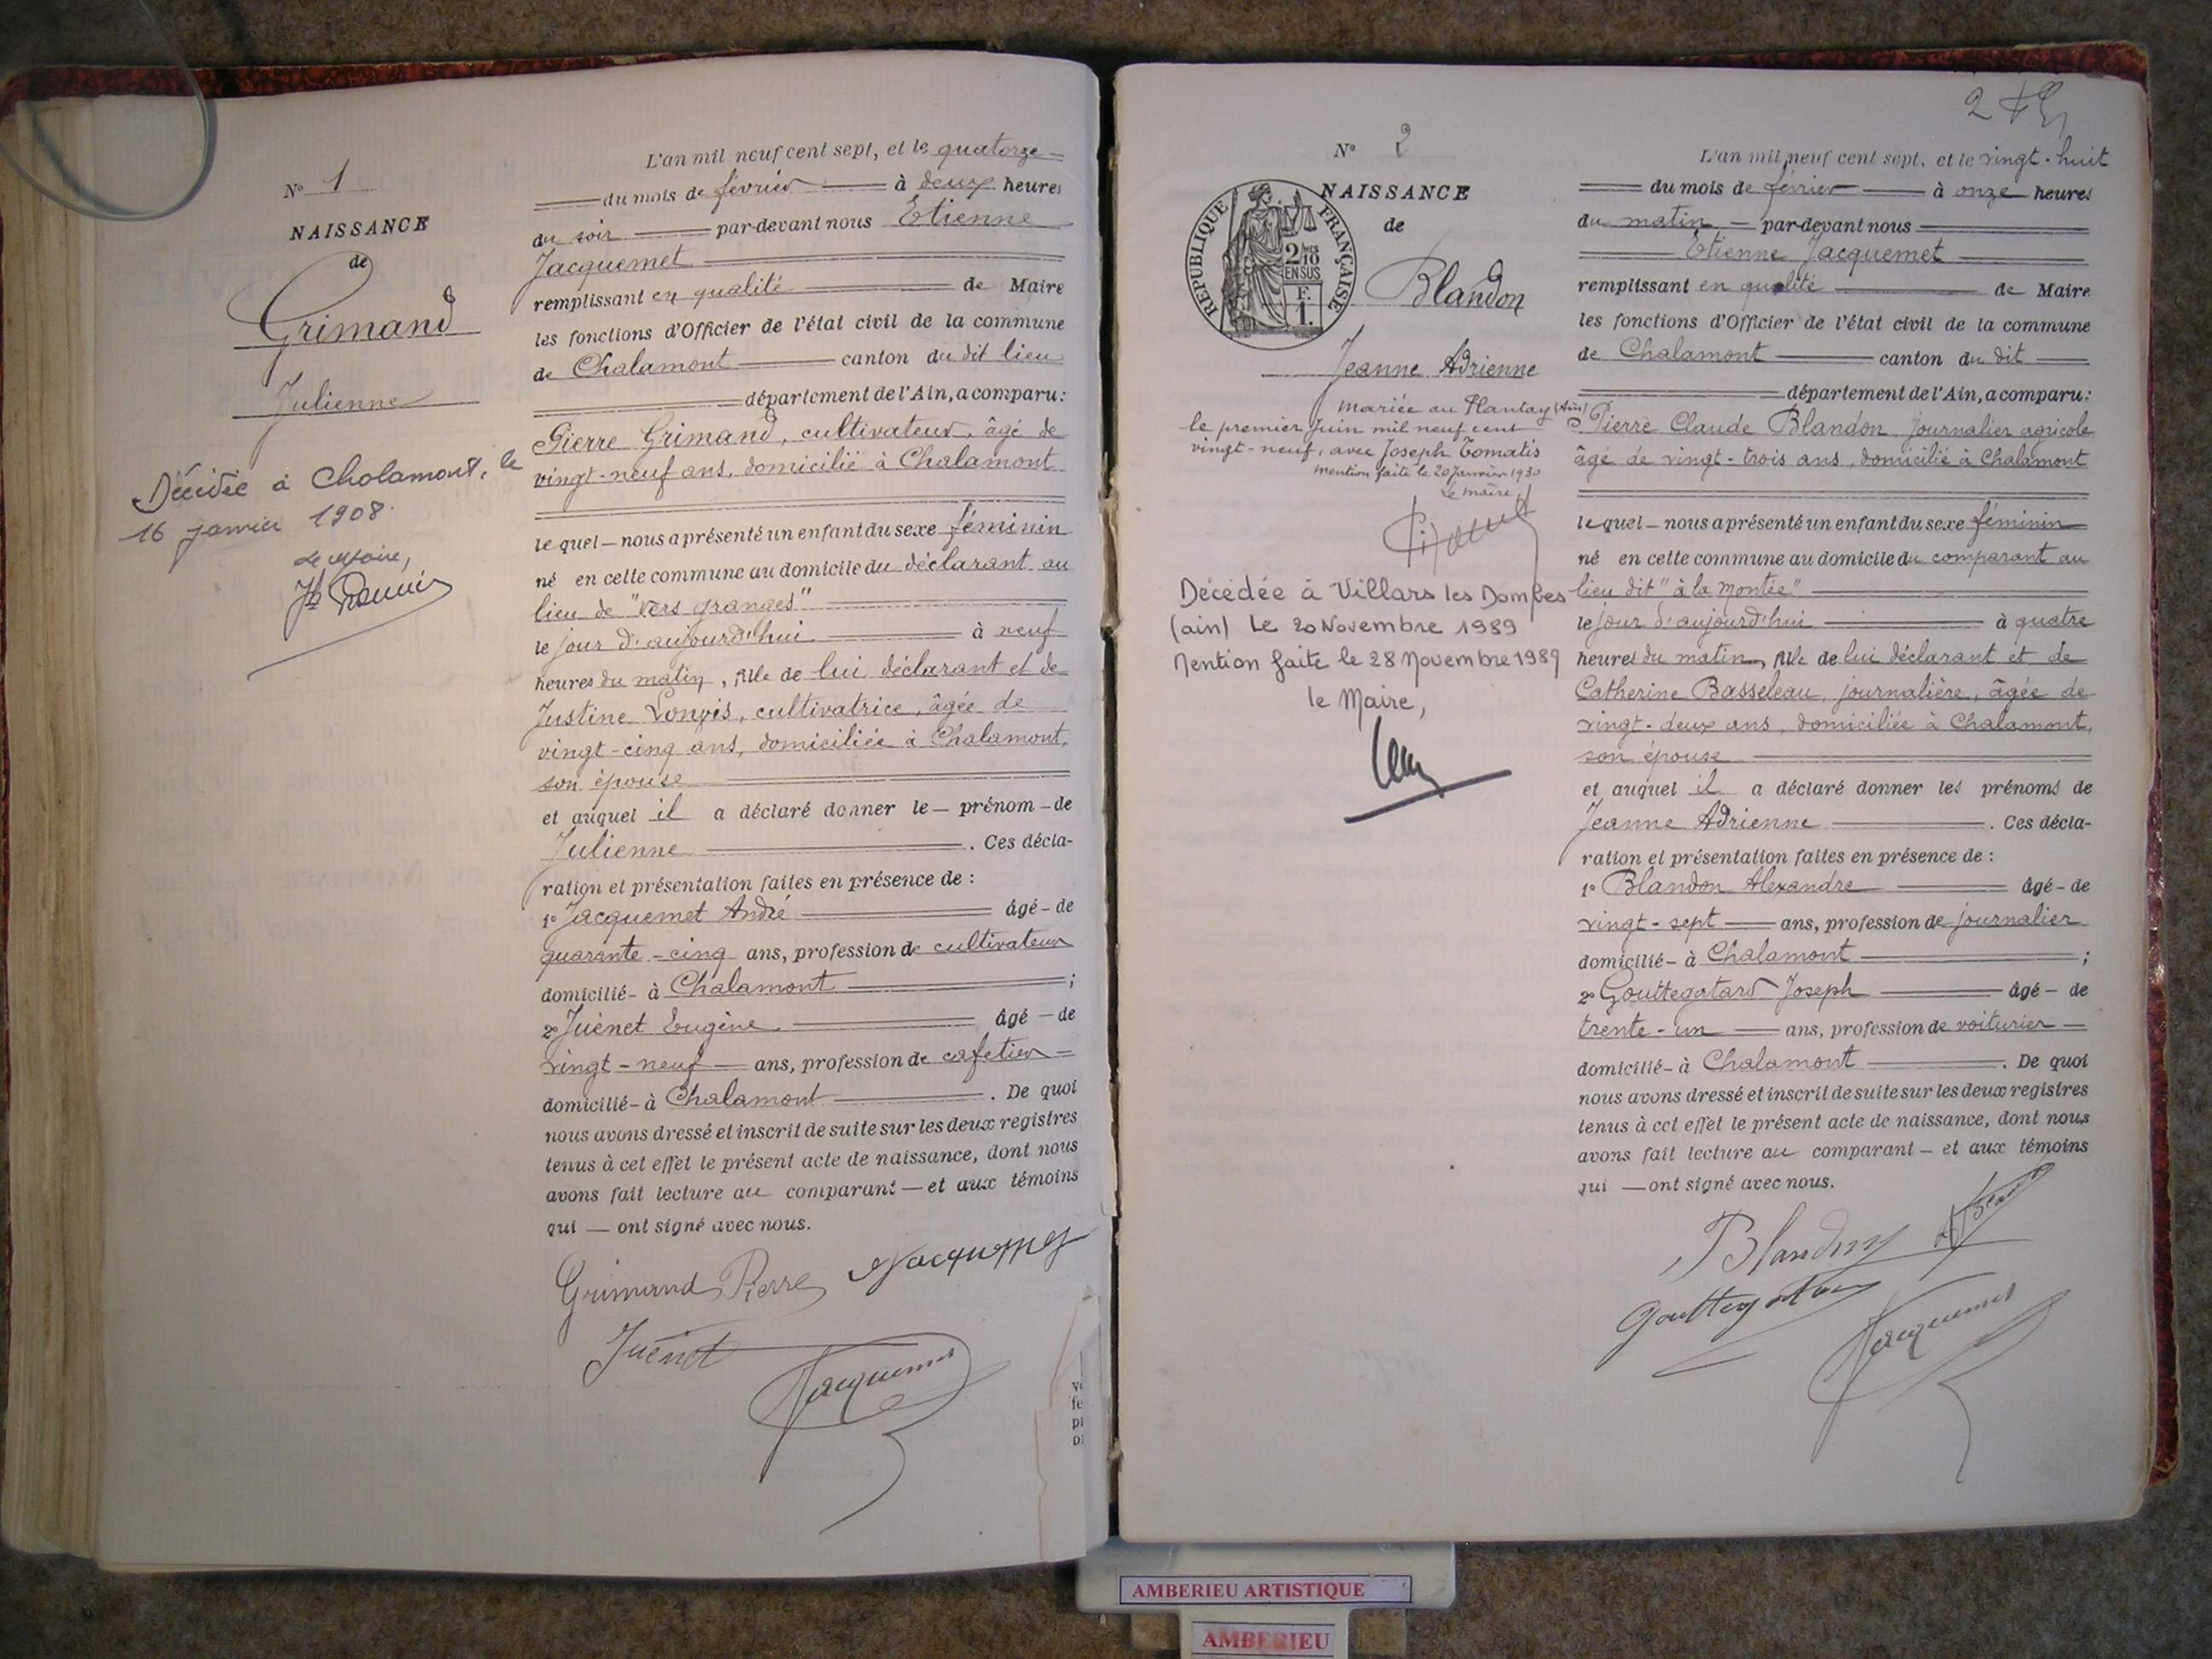 N° 1
NAISSANCE
de
Grimand
Julienne
Décédée à Chalamont, le
16 janvier 1908.
Le Maire,
L'an mil neuf cent sept, et le quatorze
du mois de février à deux heures
du soir par-devant nous Etienne
Jacquemet
remplissant en qualité de Maire
les fonctions d'Officier de l'état civil de la commune
de Chalamont canton du dit lieu
département de l'Ain, a comparu :
Pierre Grimand, cultivateur, âgé de
vingt-neuf ans, domicilié à Chalamont
lequel nous a présenté un enfant du sexe féminin
né en cette commune au domicile du déclarant au
lieu de "vers granges"
le jour d'aujourd'hui à neuf
heures du matin, fille de lui déclarant et de
Justine, cultivatrice, âgée de
vingt-cinq ans, domiciliée à Chalamont,
son épouse
et auquel il a déclaré donner le prénom de
Julienne. Ces décla-
ration et présentation faites en présence de :
1° Jacquemet André âgé de
quarante-cinq ans, profession de cultivateur
domicilié à Chalamont ;
2° Juénet Eugène âgé de
vingt-neuf ans, profession de cafetier
domicilié à Chalamont. De quoi
nous avons dressé et inscrit de suite sur les deux registres
tenus à cet effet le présent acte de naissance, dont nous
avons fait lecture au comparant et aux témoins
qui ont signé avec nous.
Grimand Pierre Jacquemet
Juénet
Jacquemet
N° 2
NAISSANCE
de
RÉPUBLIQUE FRANÇAISE
2/10 EN SUS
F. 1.
Blandon
Jeanne Adrienne
Mariée au Plantay (Ain)
le premier Juin mil neuf cent
vingt-neuf, avec Joseph Tomatis
Mention faite le 20 Janvier 1930
Le Maire
Décédée à Villars les Dombes
(ain) Le 20 Novembre 1989
Mention faite le 28 Novembre 1989
le Maire,
L'an mil neuf cent sept, et le vingt-huit
du mois de février à onze heures
du matin par-devant nous
Etienne Jacquemet
remplissant en qualité de Maire
les fonctions d'Officier de l'état civil de la commune
de Chalamont canton du dit
département de l'Ain, a comparu :
Pierre Claude Blandon journalier agricole
âgé de vingt-trois ans, domicilié à Chalamont
lequel nous a présenté un enfant du sexe féminin
né en cette commune au domicile du comparant au
lieu dit "à la Montée"
le jour d'aujourd'hui à quatre
heures du matin, fille de lui déclarant et de
Catherine Basseleau, journalière, âgée de
vingt-deux ans, domiciliée à Chalamont,
son épouse
et auquel il a déclaré donner les prénoms de
Jeanne Adrienne. Ces décla-
ration et présentation faites en présence de :
1° Blandon Alexandre âgé de
vingt-sept ans, profession de journalier
domicilié à Chalamont ;
2° Gouttegatard Joseph âgé de
trente-un ans, profession de voiturier
domicilié à Chalamont. De quoi
nous avons dressé et inscrit de suite sur les deux registres
tenus à cet effet le présent acte de naissance, dont nous
avons fait lecture au comparant et aux témoins
qui ont signé avec nous.
Blandon
Gouttegatard
Jacquemet
AMBERIEU ARTISTIQUE
AMBERIEU